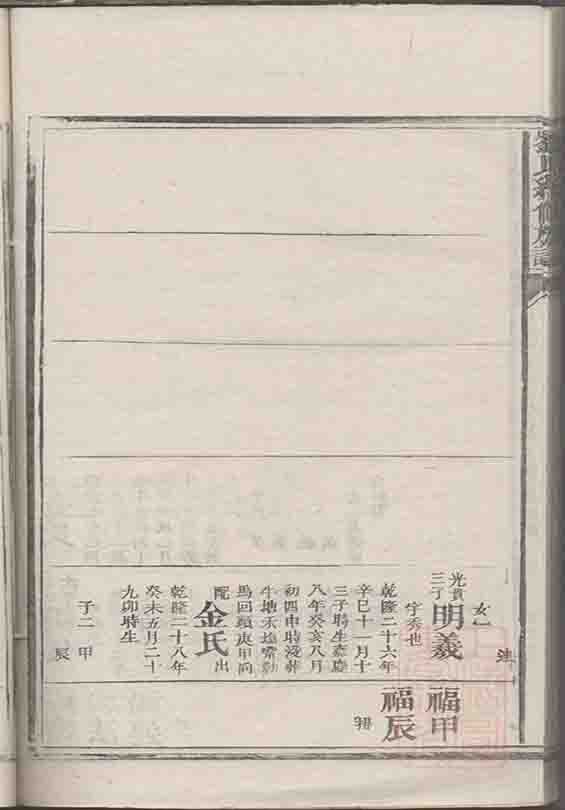 女一 達
光貴三子
明義
字秀也
乾隆二十六年
辛巳十一月十
三子時生嘉慶
八年癸亥八月
初四申時歿葬
牛塘禾塲
馬回頭庚甲向
配金氏出
乾隆二十八年
癸未五月二十
九卯時生
子二 甲
辰
福甲
福辰